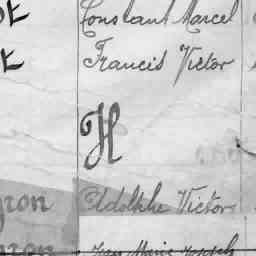 Constant Marcel
Francis Victor
H
Adolphe Victor
Jean Marie Joseph